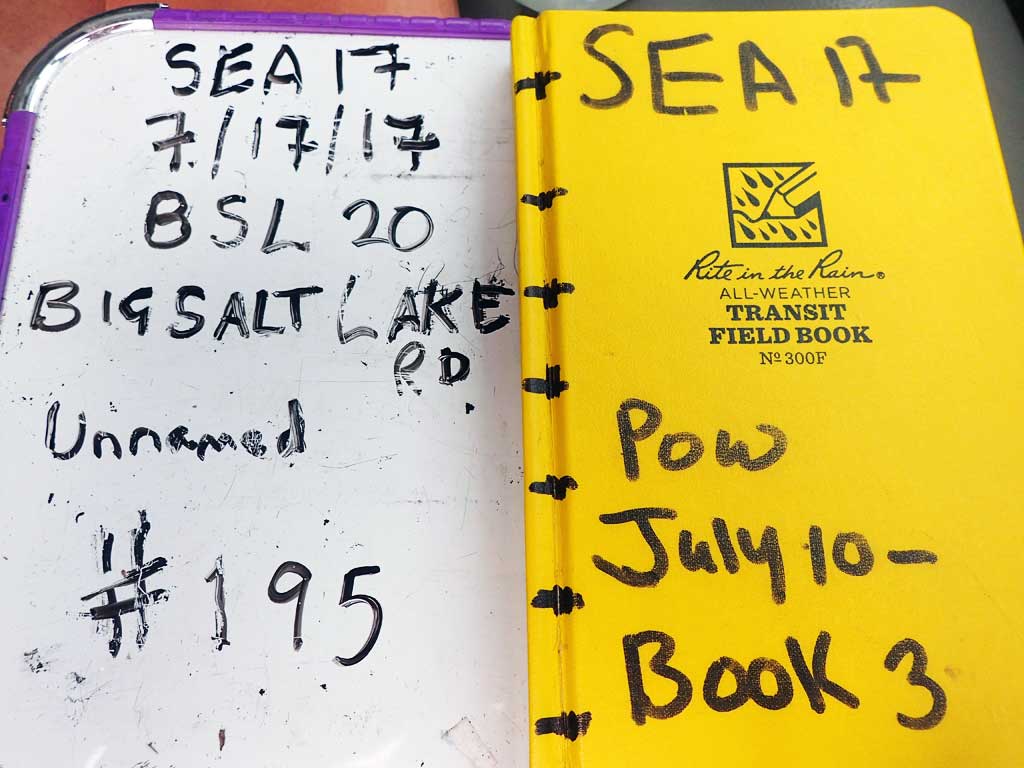 SEA 17
7/17/17
BSL 20
BIG SALT LAKE
RD.
Unnamed
#195
SEA 17
Rite in the Rain®
ALL-WEATHER
TRANSIT
FIELD BOOK
Nº 300F
POW
July 10-
BOOK 3